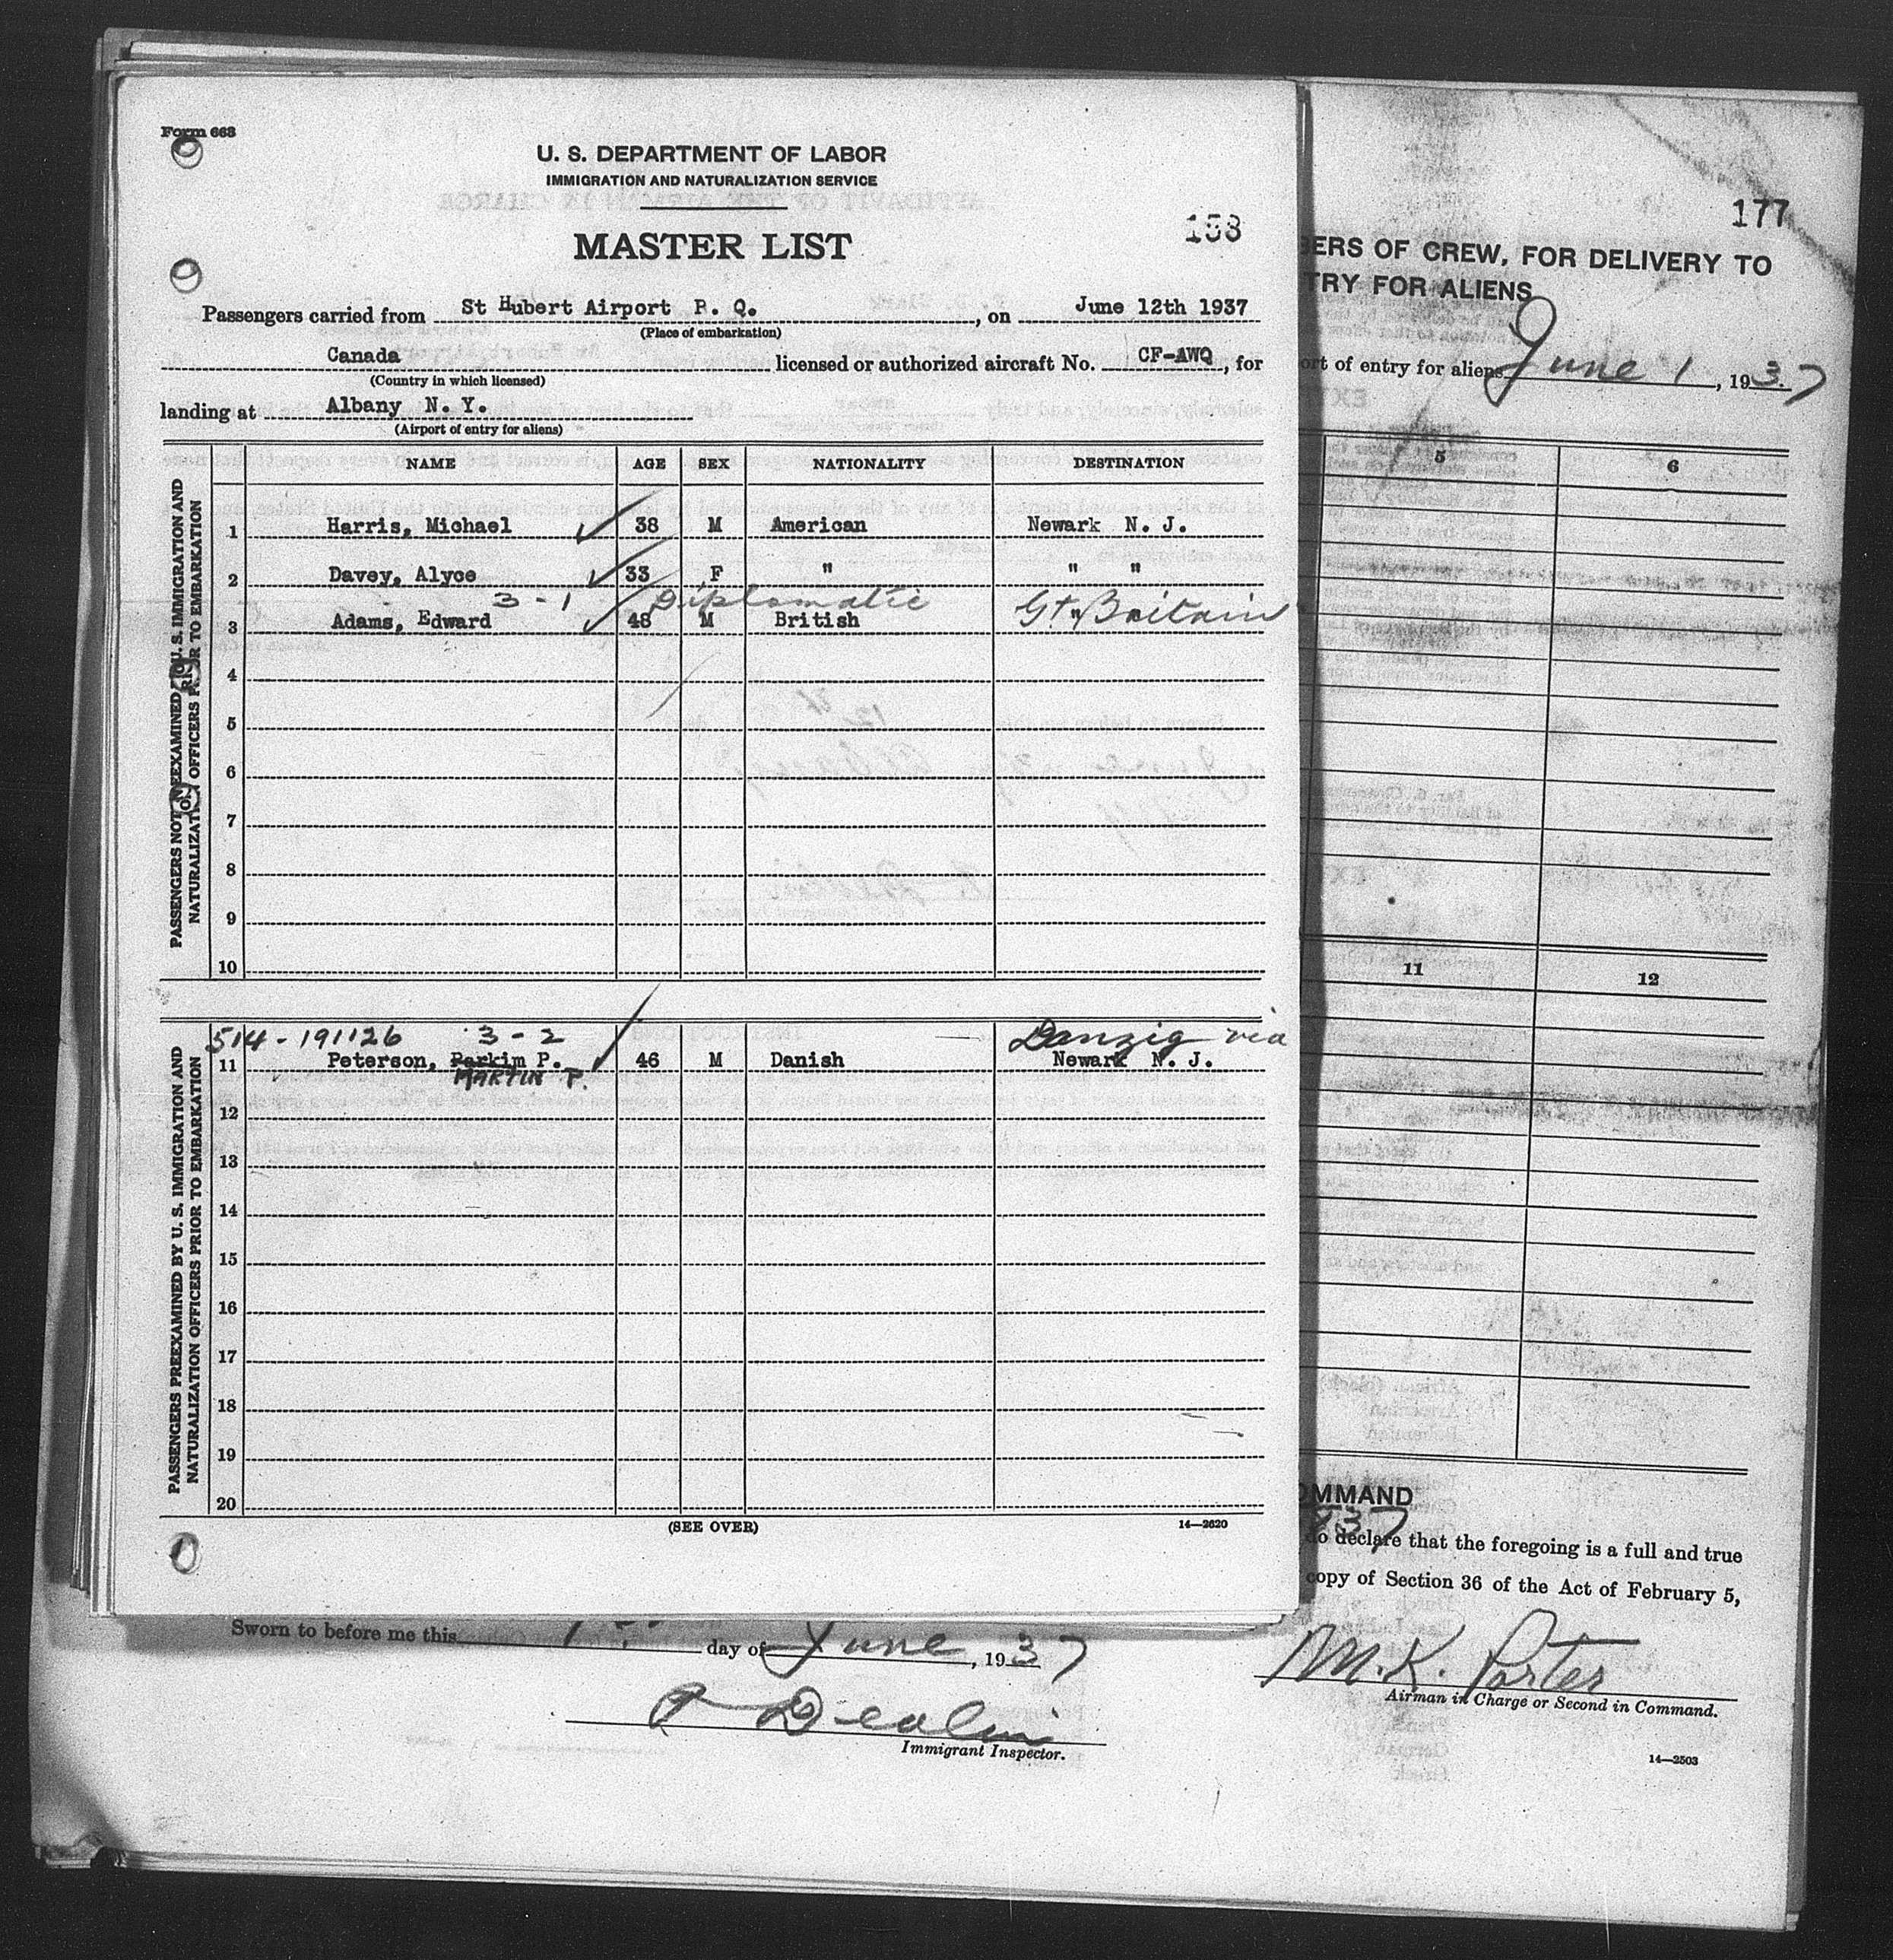 Form 668
U. S. DEPARTMENT OF LABOR
IMMIGRATION AND NATURALIZATION SERVICE
MASTER LIST
Passengers carried from St Hubert Airport P. Q., on June 12th 1937
(Place of embarkation)
Canada licensed or authorized aircraft No. CF-AWQ, for
(Country in which licensed)
landing at Albany N. Y.
(Airport of entry for aliens)
NAME AGE SEX NATIONALITY DESTINATION
PASSENGERS NOT PREEXAMINED BY U. S. IMMIGRATION AND
NATURALIZATION OFFICERS PRIOR TO EMBARKATION
1 Harris, Michael 38 M American Newark N. J.
2 Davey, Alyce 33 F " " "
3-1 Diplomatic Gt. Britain
3 Adams, Edward 48 M British "
4
5
6
7
8
9
10
PASSENGERS PREEXAMINED BY U. S. IMMIGRATION AND
NATURALIZATION OFFICERS PRIOR TO EMBARKATION
514-191126 3-2 Danzig via
11 Peterson, Parkim P. 46 M Danish Newark N. J.
MARTIN P.
12
13
14
15
16
17
18
19
20
(SEE OVER)
14—2620
177
BERS OF CREW, FOR DELIVERY TO
TRY FOR ALIENS
ort of entry for aliens June 1, 1937
5 6
11 12
OMMAND
do declare that the foregoing is a full and true
copy of Section 36 of the Act of February 5,
Sworn to before me this day of June, 1937
M.K. Porter
Airman in Charge or Second in Command.
Immigrant Inspector.
14—2503